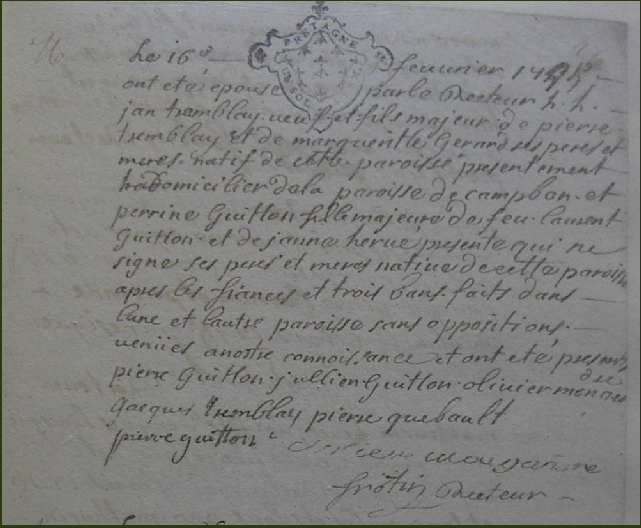 BRETAGNE
Le 16e feuurier
ont eté epousé par le Recteur h. h.
jan tremblay veuf et fils majeur de pierre
tremblay et de margueritte Gerard ses peres et
meres natif de cette paroisse presentement
domicilier de la paroisse de campbon et
perrine Guitton fille majeure de feu laurent
Guitton et de janne herué presente qui ne
signe ses peres et meres natiue de cette paroisse
apres les fiances et trois bans faits dans
lune et lautre paroisse sans oppositions
veniies a nostre connoissance et ont eté presents
pierre Guitton jullien Guitton oliuier
Jacques tremblay pierre quebault
pierre guitton
Recteur